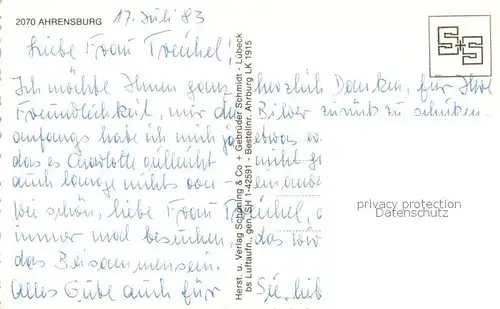 2070 AHRENSBURG 17. Juli 83
Liebe Frau Treuhel,
Ich möchte Ihnen ganz herzlich Danken, für Ihre
Freundlichkeit, mir die Bilder zurück zu schicken.
anfangs habe ich mich ja etwas
das es Charlotte vielleicht nicht
auch lange nichts von
Wie schön, liebe Frau
immer mal besuchen, das wir
das Beisammensein.
Alles Gute auch für Sie, lieb
Herst. u. Verlag Schöning & Co + Gebrüder Schmidt - Lübeck
bs Luftaufn., gen. SH 1-42591 - Bestellnr. Ahrburg LK 1915
S+S
privacy protection
Datenschutz